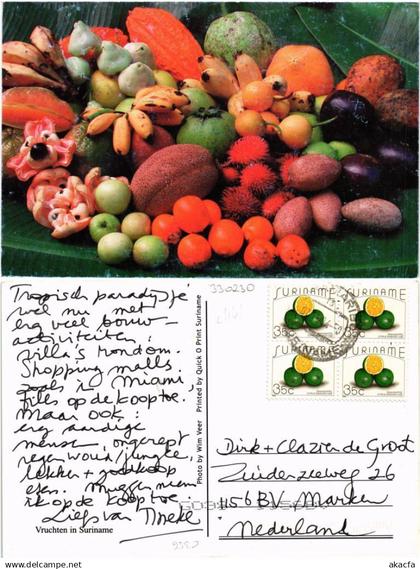 Tropisch paradijsje
wel nu met
erg veel bouw-
activiteiten:
villa's rondom.
Shopping malls
zoals in Miami,
files op de koop toe.
Maar ook:
erg aardige
mensen, ongerept
regenwoud/jungle,
lekker + goedkoop
eten. Muggen neem
ik op de koop toe.
Liefs van Tineke
Vruchten in Suriname
Photo by Wim Veer Printed by Quick O Print Suriname
330230
SURINAME
SURINAME
35c
35c
SURINAME
SURINAME
35c
35c
Dirk + Clazien de Groot
Zuiderzeeweg 26
1156 BV Marken
Nederland
www.akacfa.com